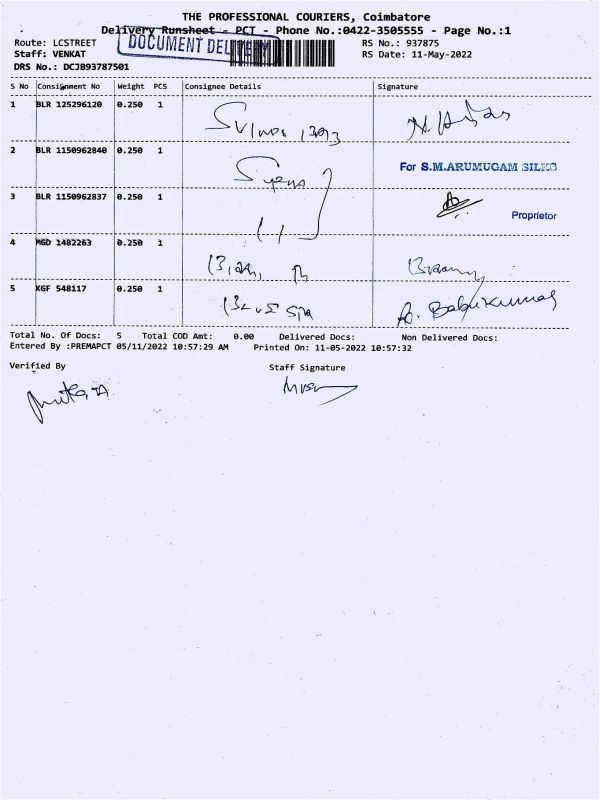 THE PROFESSIONAL COURIERS, Coimbatore
Delivery Runsheet - PCT - Phone No.:0422-3505555 - Page No.:1
DOCUMENT DELIVERY
Route: LCSTREET
RS No.: 937875
Staff: VENKAT
RS Date: 11-May-2022
DRS No.: DCJB93787501
S No Consignment No Weight PCS Consignee Details Signature
1 BLR 125296120 0.250 1
2 BLR 1150962840 0.250 1
For S.M.ARUMUGAM SILKS
3 BLR 1150962837 0.250 1
Proprietor
4 MGD 1482263 0.250 1
5 KGF 548117 0.250 1 B. Babu Kumar
Total No. Of Docs: 5 Total COD Amt: 0.00 Delivered Docs: Non Delivered Docs:
Entered By :PREMAPCT 05/11/2022 10:57:29 AM Printed On: 11-05-2022 10:57:32
Verified By Staff Signature